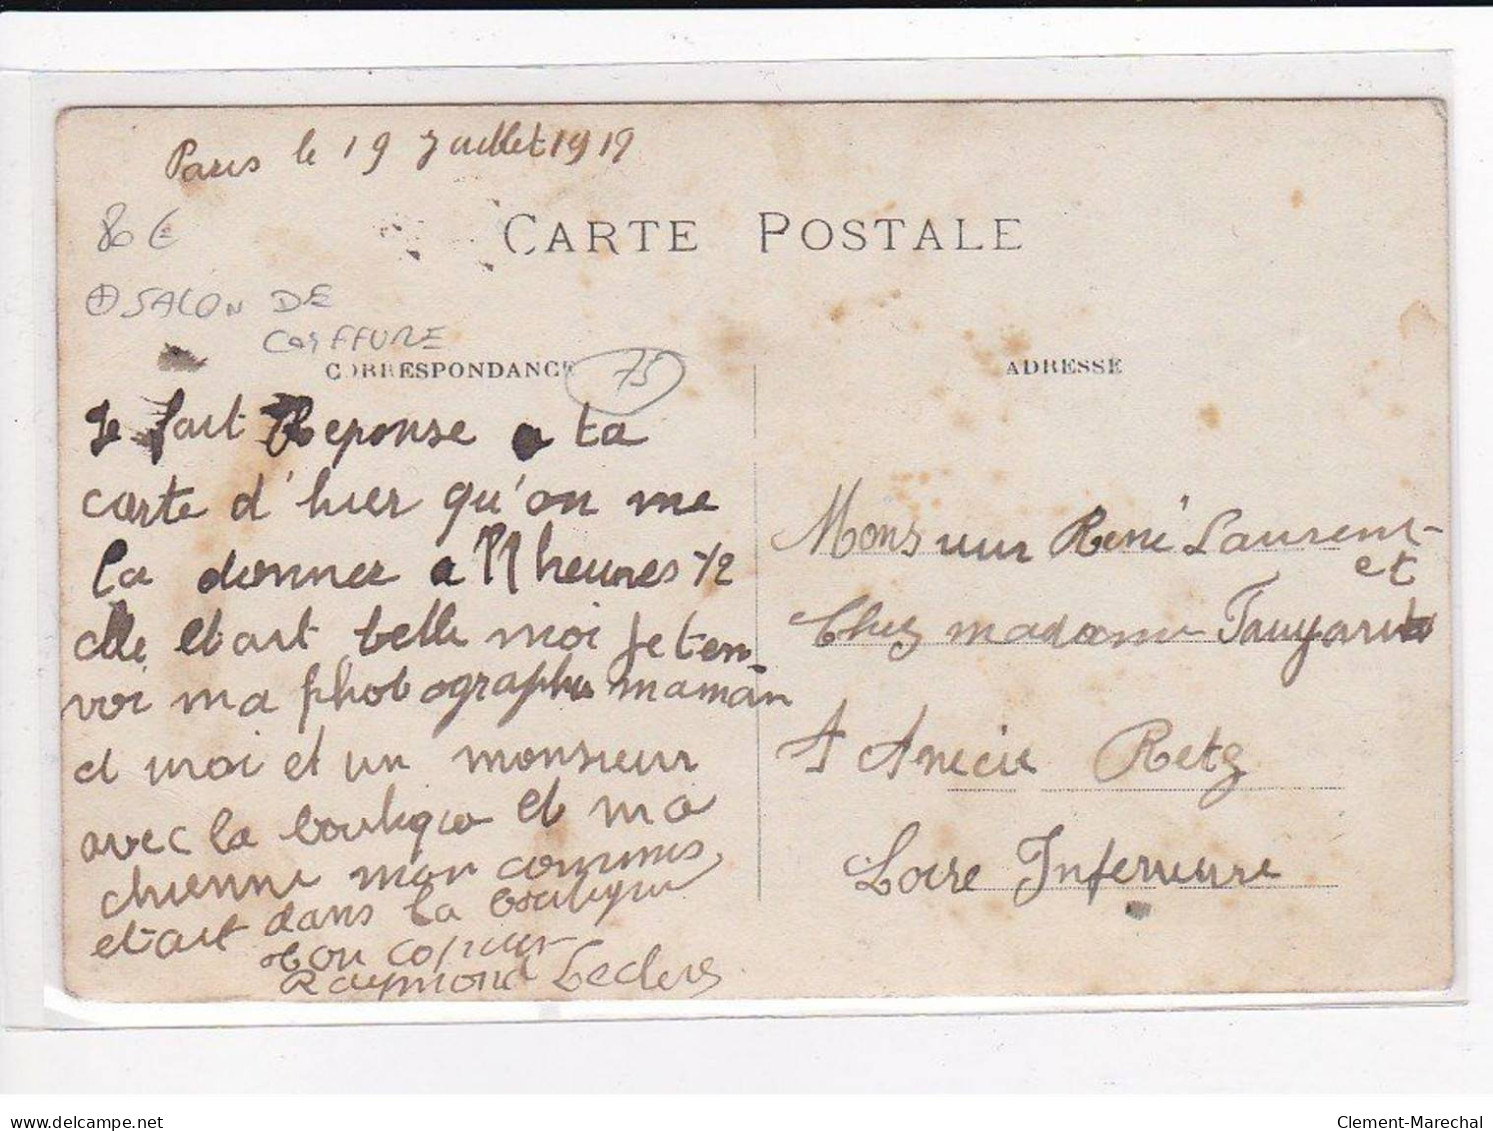 Paris le 19 Juillet 1912
80 €
SALON DE
COIFFURE
CARTE POSTALE
CORRESPONDANCE
75
ADRESSE
Je fait Reponse a ta
carte d'hier qu'on me
la donner a 11 heures 1/2
elle etait belle moi je ten
voi ma photographie maman
et moi et un monsieur
avec la boutique et ma
chienne mon commis
etait dans la boutique
ton copain
Raymond Leclerc
Monsieur René Laurent
et
Chez madame
A Anecie Retz
Loire Inferieure
delcampe.net
Clement-Marechal